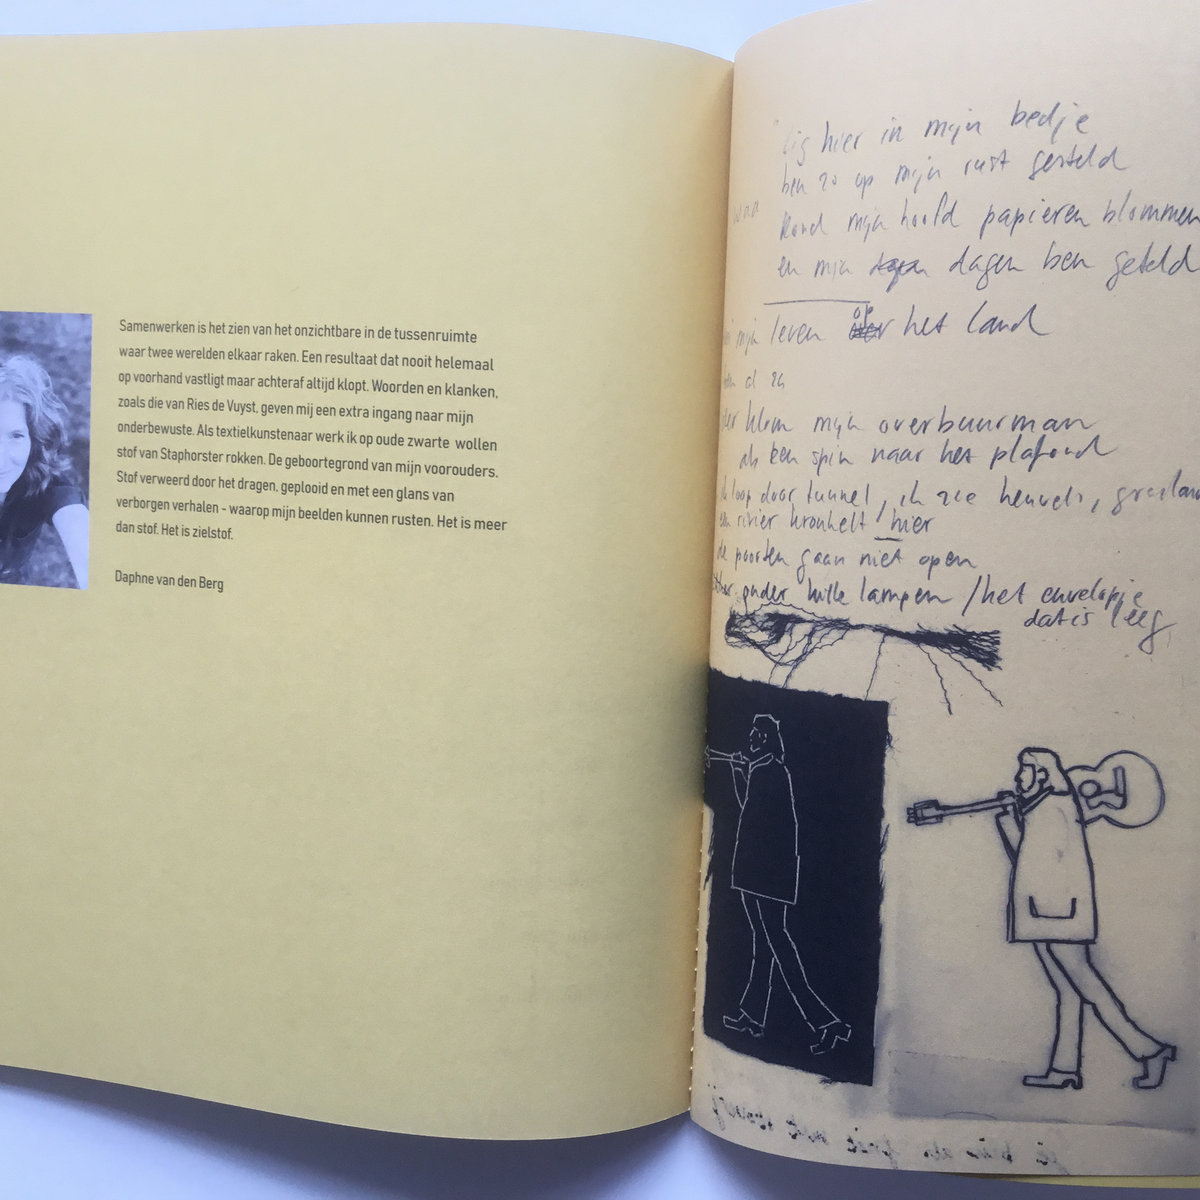 Samenwerken is het zien van het onzichtbare in de tussenruimte
waar twee werelden elkaar raken. Een resultaat dat nooit helemaal
op voorhand vastligt maar achteraf altijd klopt. Woorden en klanken,
zoals die van Ries de Vuyst, geven mij een extra ingang naar mijn
onderbewuste. Als textielkunstenaar werk ik op oude zwarte wollen
stof van Staphorster rokken. De geboortegrond van mijn voorouders.
Stof verweerd door het dragen, geplooid en met een glans van
verborgen verhalen - waarop mijn beelden kunnen rusten. Het is meer
dan stof. Het is zielstof.
Daphne van den Berg
lig hier in mijn bedje
ben zo op mijn rust gesteld
Rond mijn hoofd papieren blommen
en mijn dagen ben geteld
mijn leven op het land
mijn overbuurman
als een spin naar het plafond
loop door tunnel, ik zie heuvels,
rivier kronkelt / hier
de poorten gaan niet open
onder witte lampen / het envelopje
dat is leeg